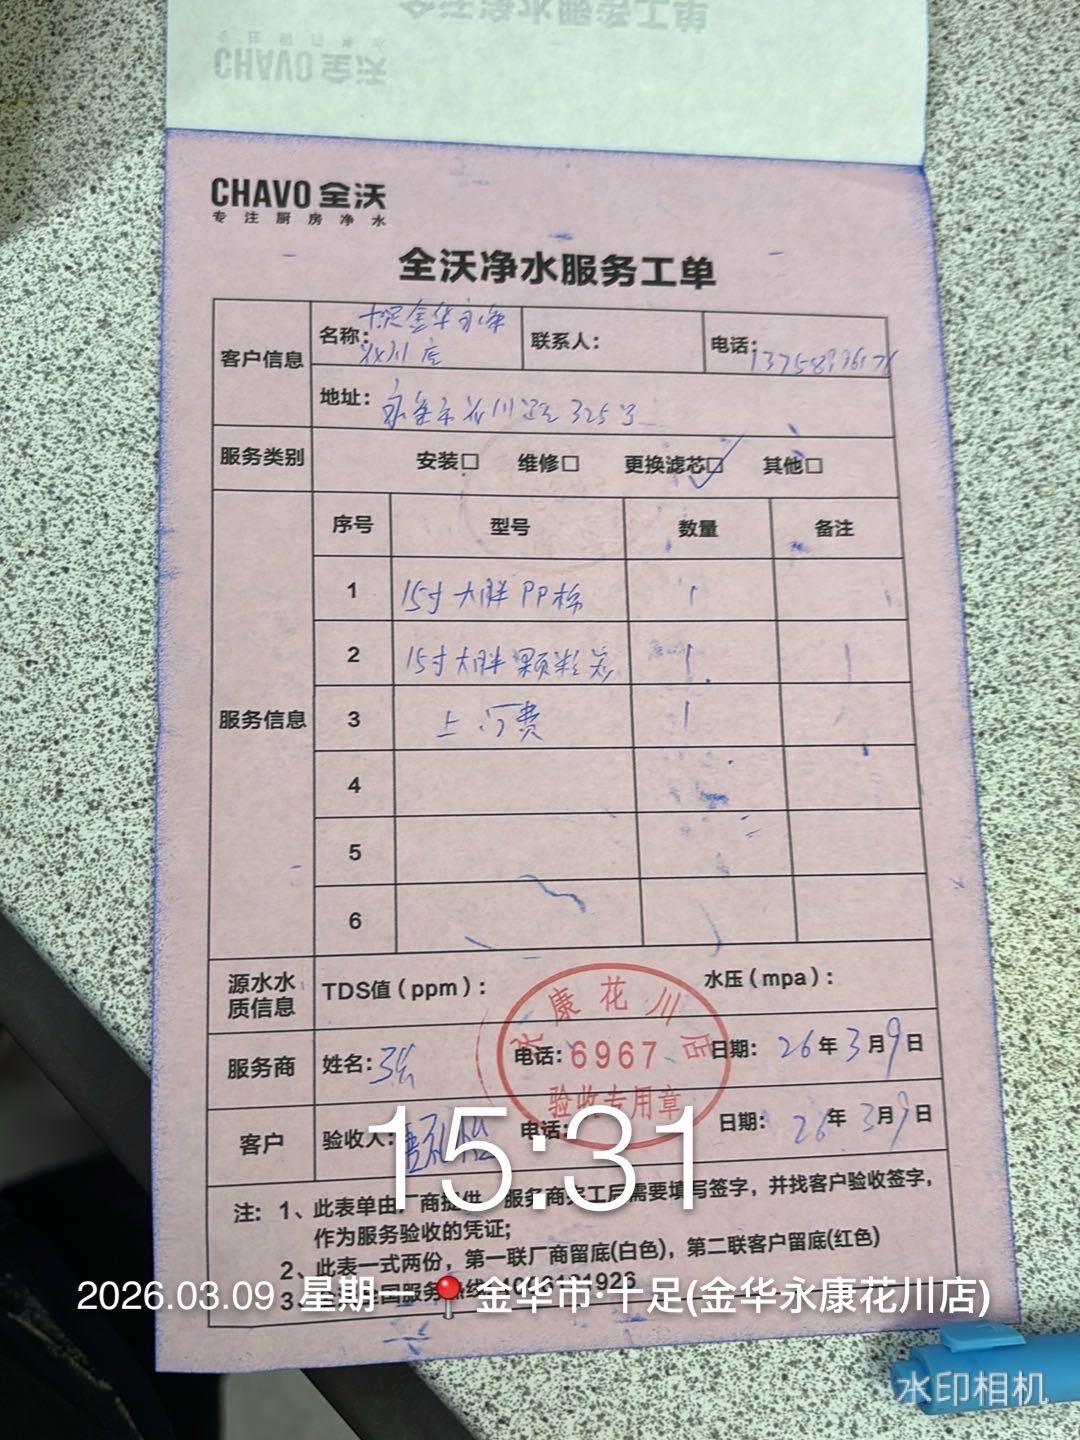 全沃净水服务工单
CHAVO 全沃
CHAVO 全沃
专注厨房净水
全沃净水服务工单
客户信息
名称：十足金华永康
花川店
联系人：
电话：
地址：永康市花川 325号
服务类别
安装□ 维修□ 更换滤芯□ 其他□
服务信息
序号 型号 数量 备注
1 15寸大胖PP棉 1
2 15寸大胖颗粒炭 1
3 上门费 1
4
5
6
源水水质信息
TDS值（ppm）： 水压（mpa）：
服务商 姓名：张 电话： 日期：26年3月9日
永康花川店
6967
验收专用章
客户 验收人： 电话： 日期：26年3月9日
15:31
注：1、此表单由厂商提供，服务商 工 需要填写签字，并找客户验收签字，
作为服务验收的凭证；
2、此表一式两份，第一联厂商留底(白色)，第二联客户留底(红色)
3、 国服务热线
2026.03.09 星期一 金华市·十足(金华永康花川店)
水印相机